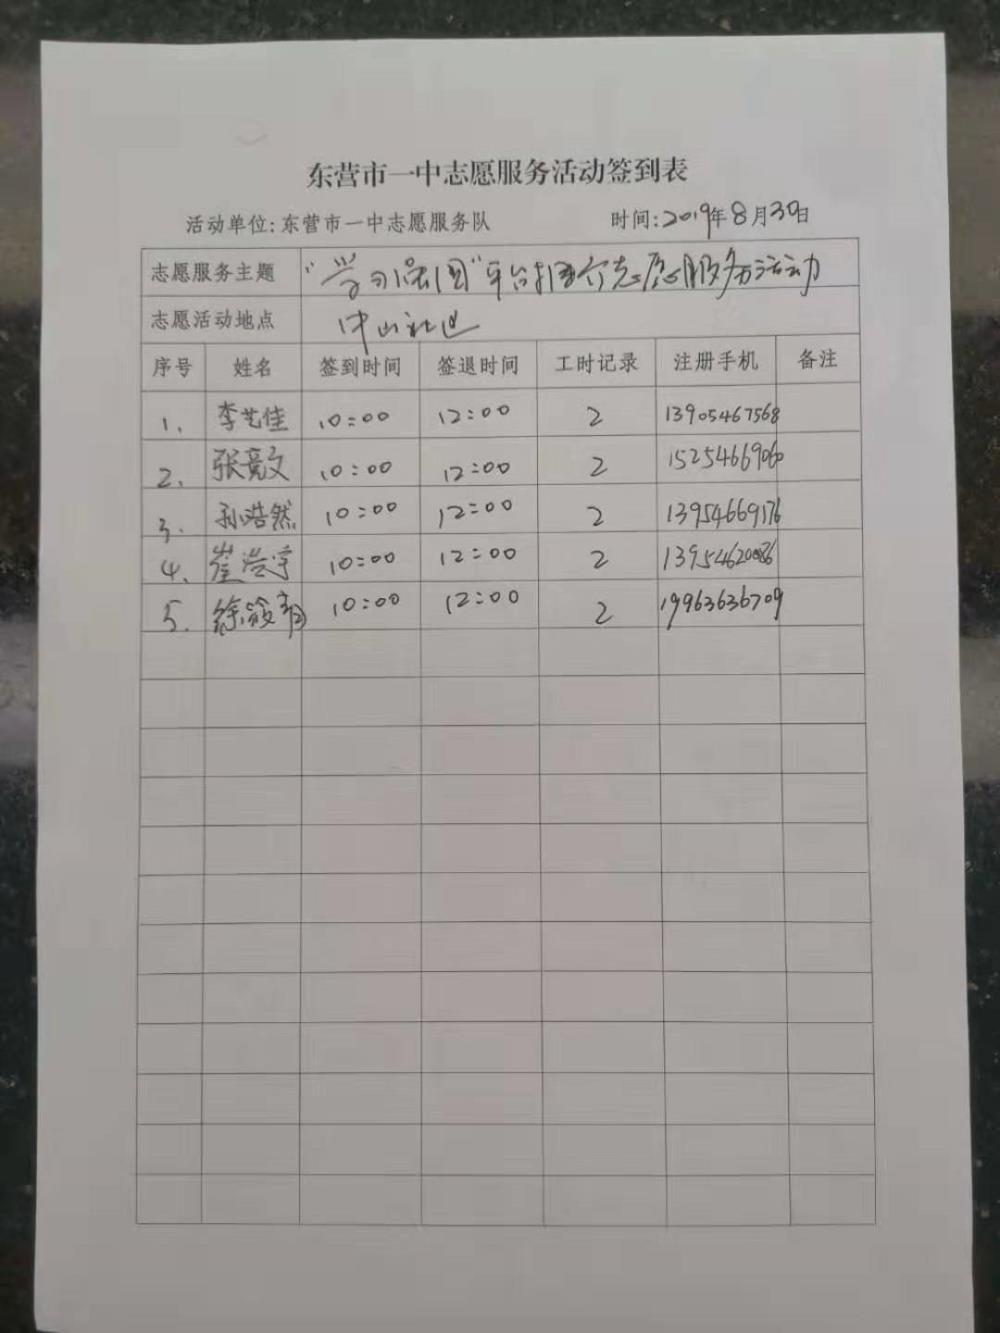 东营市一中志愿服务活动签到表
活动单位:东营市一中志愿服务队 时间:2019年8月30日
志愿服务主题 "学习强国"平台推介志愿服务活动
志愿活动地点 中山社区
序号 姓名 签到时间 签退时间 工时记录 注册手机 备注
1. 李艺佳 10:00 12:00 2 13905467568
2. 张竞文 10:00 12:00 2 15254669060
3. 孙浩然 10:00 12:00 2 13954669176
4. 崔浩宇 10:00 12:00 2 13954620086
5. 徐筱 10:00 12:00 2 19963636709